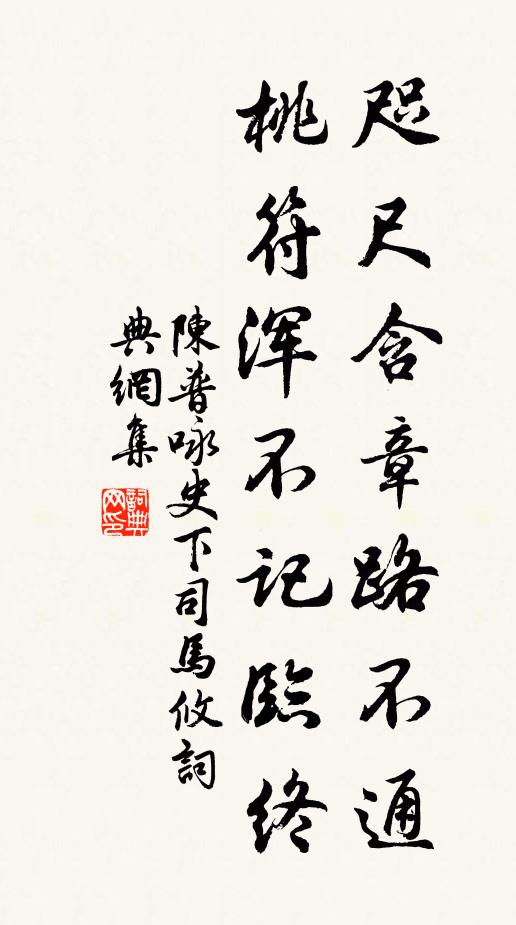 咫尺含章路不通
桃符浑不记臨终
陳普咏史下司馬攸詞
典網集
詞典网印